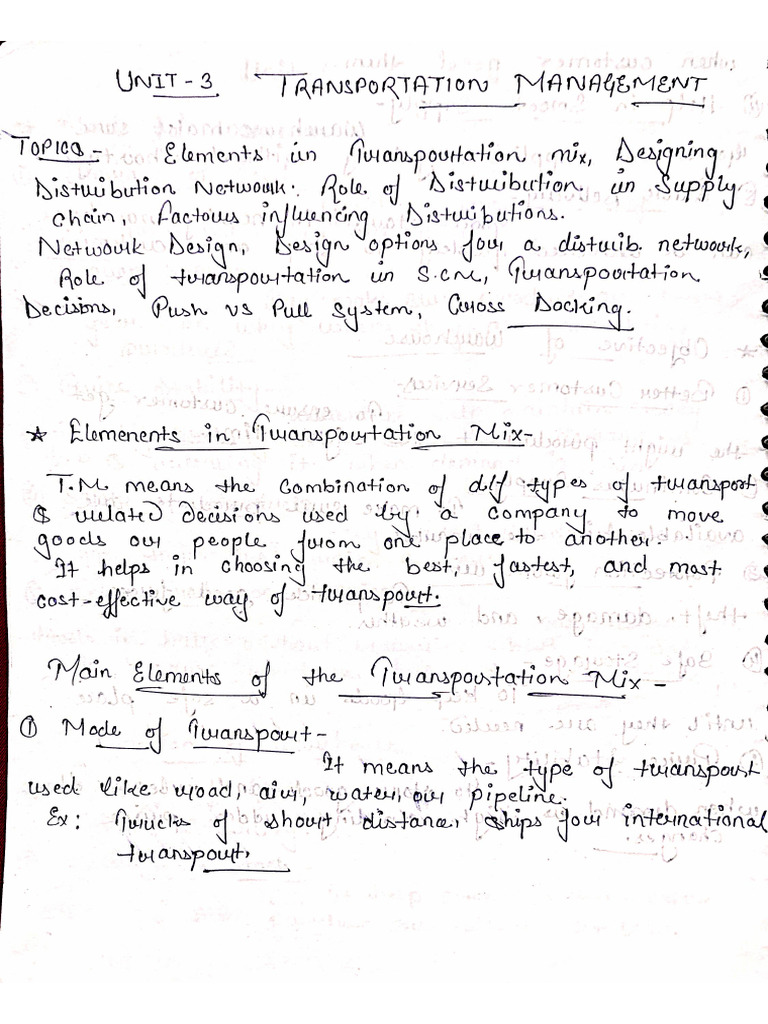 UNIT - 3 TRANSPORTATION MANAGEMENT
TOPICS - Elements in Transportation mix, Designing
Distribution Network. Role of Distribution in Supply
chain, factors influencing Distributions.
Network Design, Design options for a distrib. network,
Role of transportation in S.CM, Transportation
Decisions, Push vs Pull System, Cross Docking.
★ Elemenents in Transportation Mix-
T.M means the combination of d/f types of transport
& related decisions used by a company to move
goods or people from one place to another.
It helps in choosing the best, fastest, and most
cost-effective way of transport.
Main Elements of the Transpostation Mix -
① Mode of Transport-
It means the type of transpost
used like road, air, water, or pipeline.
Ex: Trucks of short distance, ships for international
transport.